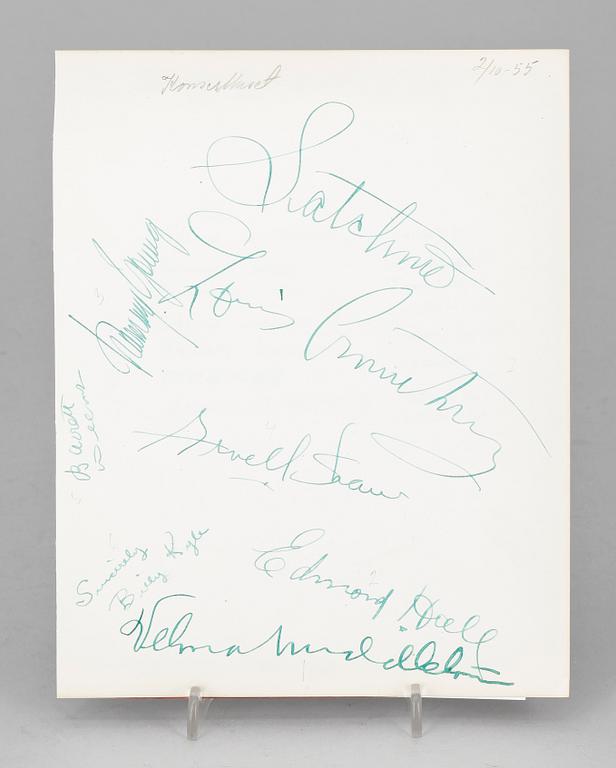 Konserthuset
2/10-55
Satchmo
Louis Armstrong
Trummy Young
Barrett Deems
Arvell Shaw
Sincerely
Billy Kyle
Edmond Hall
Velma Middleton